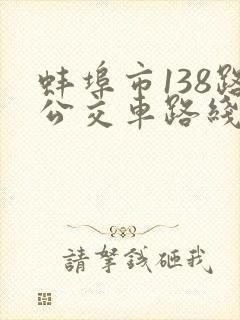 蚌埠市138路
公交車路綫
請拏錢砸我